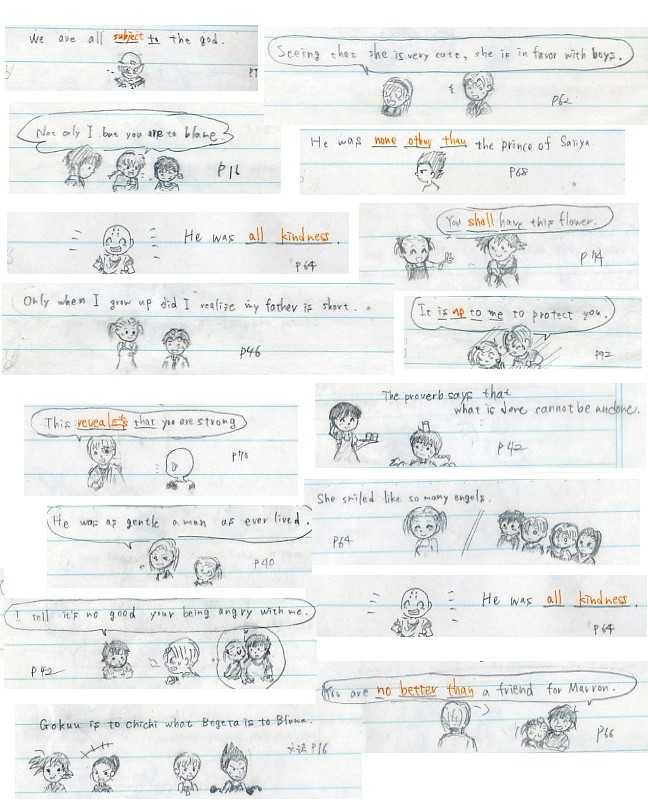 We are all subject to the god.
Seeing that she is very cute, she is in favor with boys.
P62
Not only I but you are to blame.
P16
He was none other than the prince of Saiya.
P68
He was all kindness.
P64
You shall have this flower.
Only when I grow up did I realize my father is short.
P46
It is up to me to protect you.
P92
The proverb says that
what is done cannot be undone.
P42
This reveals that you are strong
P70
She smiled like so many angels.
P64
He was as gentle a man as ever lived.
P40
He was all kindness.
P64
I tell it's no good your being angry with me.
P42
You are no better than a friend for Marron.
P66
Gokuu is to chichi what Begeta is to Bluma.
P16